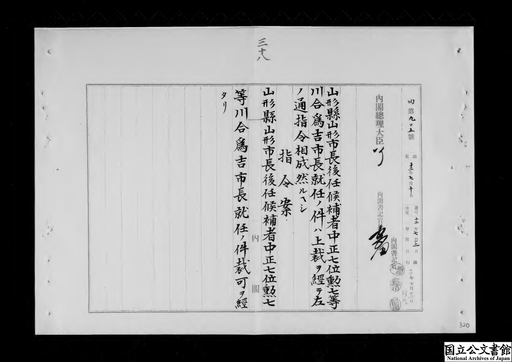 三十八
内閣總理大臣
内閣書記官
山形縣山形市長後任候補者中正七位勲七等
川合為吉市長就任ノ件ハ上裁ヲ経テ左
ノ通指令相成然ルヘシ
指令案
山形縣山形市長後任候補者中正七位勲七
等川合為吉市長就任ノ件裁可ヲ經
タリ
内閣
320
国立公文書館
National Archives of Japan